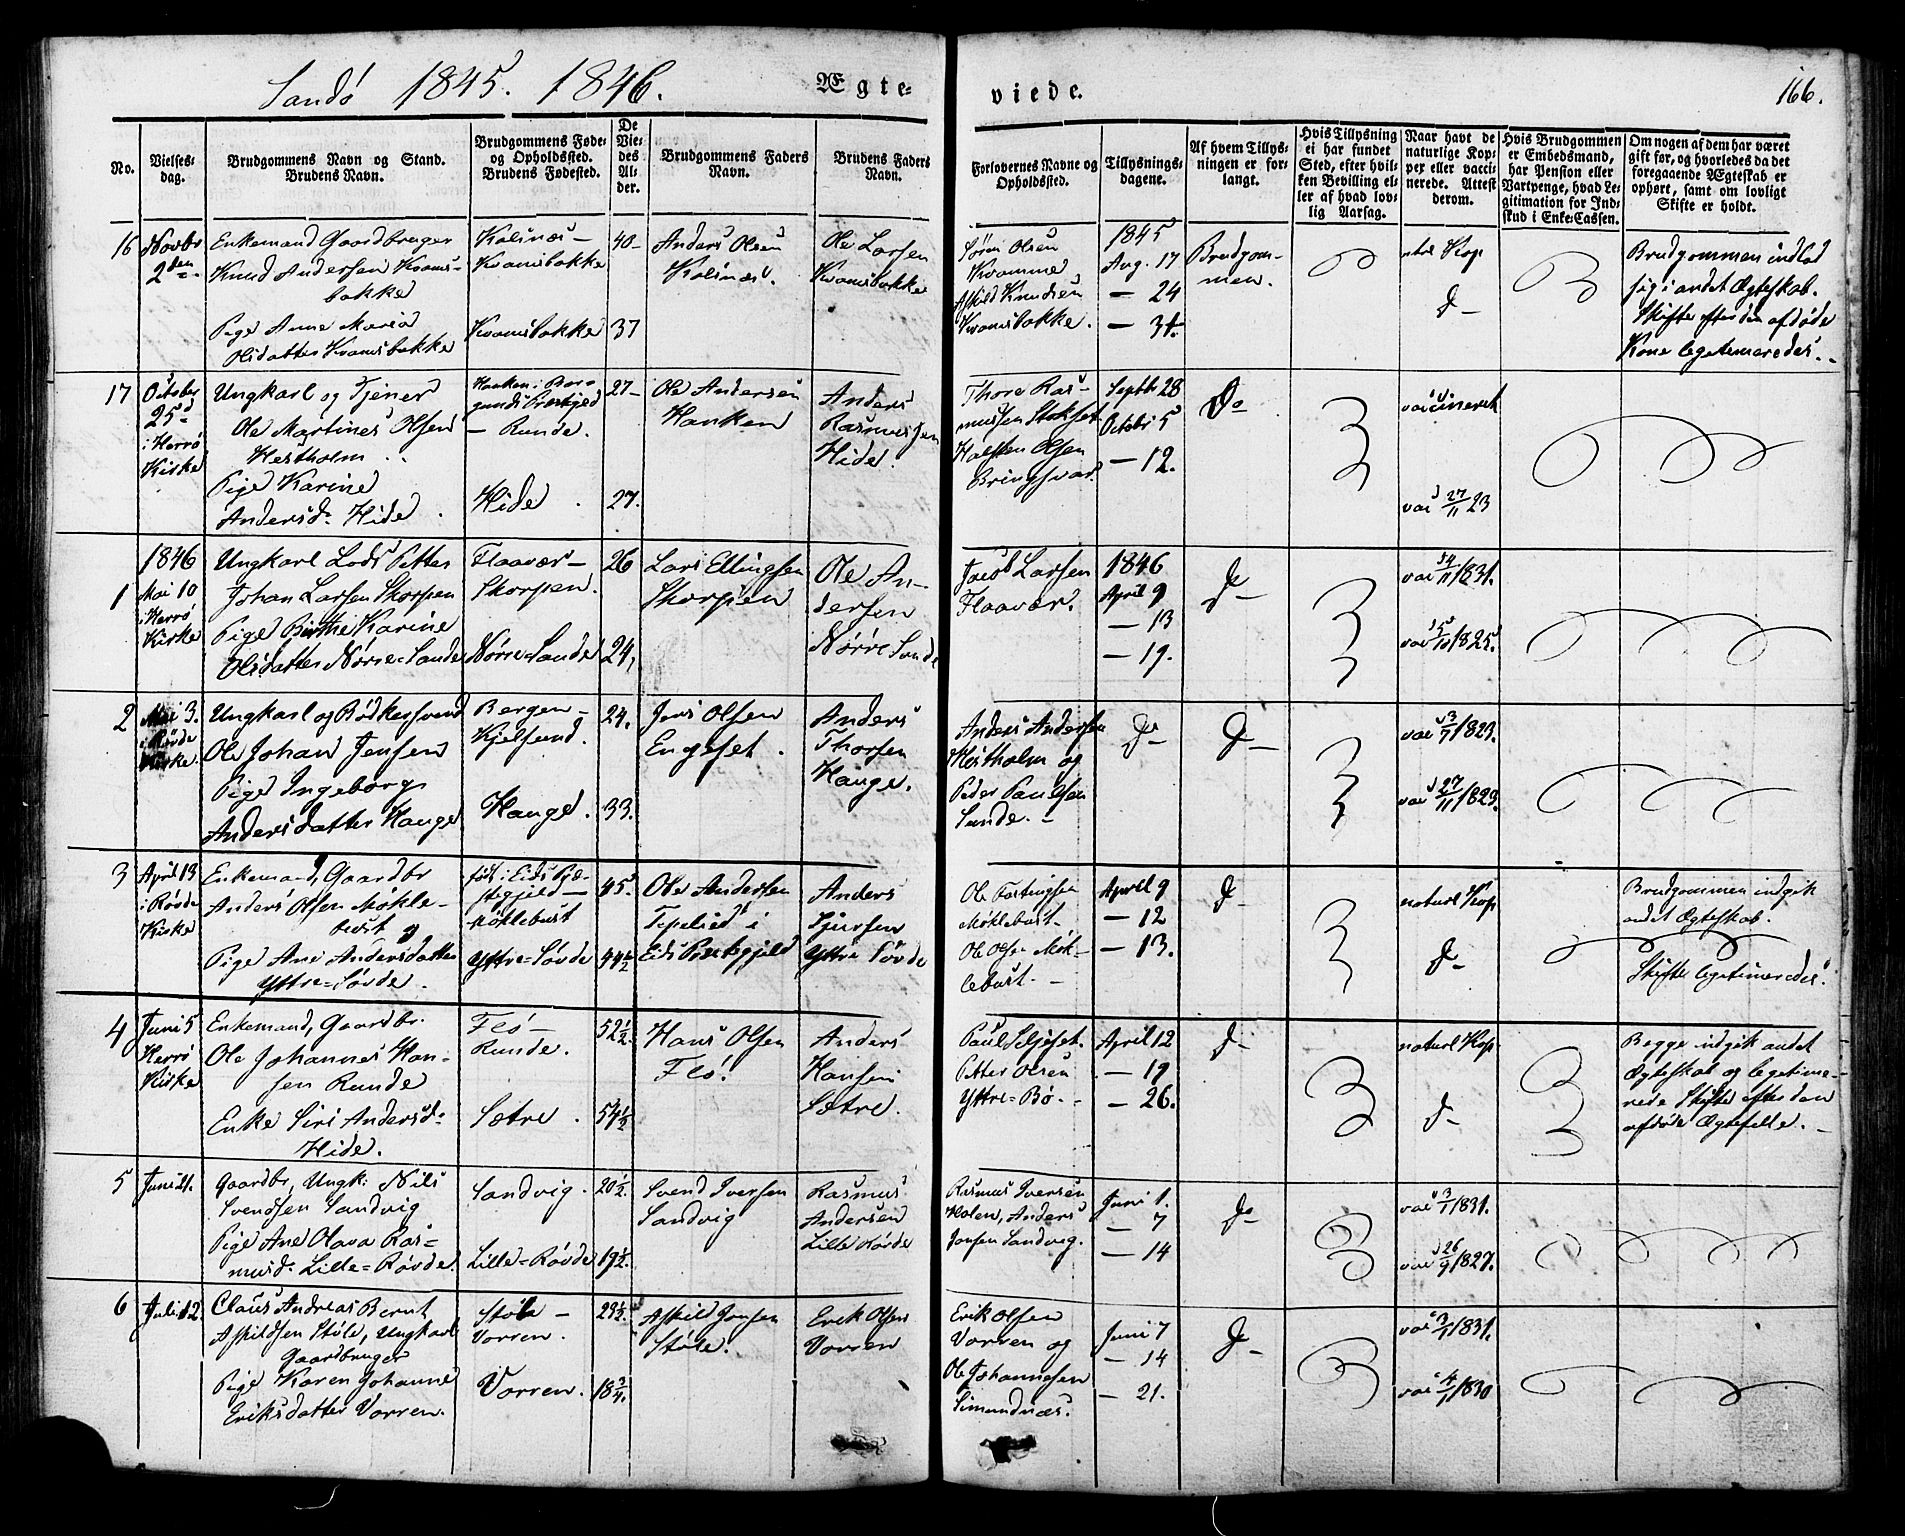 Sandö 1845. 1846.
Ægte-
viede.
166.
No.
Vielses-
dag.
Brudgommens Navn og Stand.
Brudens Navn.
Brudgommens Føde-
og Opholdssted.
Brudens Fødested.
De
Vie-
des
Al-
der.
Brudgommens Faders
Navn.
Brudens Faders
Navn.
Forlovernes Navne og
Opholdssted.
Tillysnings-
dagene.
Af hvem Tillys-
ningen er for-
langt.
Hvis Tillysning
ei har fundet
Sted, efter hvil-
ken Bevilling el-
ler af hvad lov-
lig Aarsag.
Naar havt de
naturlige Kop-
per eller vacci-
nerede. Attest
derom.
Hvis Brudgommen
er Embedsmand,
har Pension eller
Vartpenge, hvad Le-
gitimation for Ind-
skud i Enke-Cassen.
Om nogen af dem har været
gift før, og hvorledes da det
foregaaende Ægteskab er
ophørt, samt om lovligt
Skifte er holdt.
16
Novbr
2den
Enkemand Gaardbruger
Knud Andersen Kvams-
bakke
Pige Anne Maria
Olsdatter Kvamsbakke
Kolsnæs -
Kvamsbakke
Kvamsbakke
40-
37
Anders Olsen
Kolsnæs.
Ole Larsen
Kvamsbakke
Sørn Olsen
Kvamme
Askild Knudsen
Kvamsbakke.
1845
Aug. 17
- 24
- 31.
Brudgom-
men.
ntrl Kop
do-
Brudgommen indlod
sig i andet Ægteskab.
Skifte efter den afdøde
Kone legetimeredes.
17
October
25d
i Herrö
Kirke
Ungkarl og Tjener
Ole Martines Olsen
Hestholm
Pige Karine
Andersd. Hide.
Hanken i Bor-
gunds Prstgjed
- Runde.
Hide.
27-
27.
Ole Andersen
Hanken
Anders
Rasmussen
Hide.
Thore Ras-
mussen Stokset
Halsten Olsen
Bringsvar.
Septb 28
Octobr 5
- 12.
Do
vaccineret
vac 27/11 23
1846
1
Mai 10
i Herrö
Kirke
Ungkarl Lods Petter
Johan Larsen Skorpen
Pige Birthe Karine
Olsdatter Nörre-Sande
Flaavær-
Skorpen.
Nörre-Sande
26
24,
Lars Ellingsen
Skorpen
Ole An-
dersen
Nörre Sande
Jacob Larsen
Flaavær.
1846
April 9
- 13
- 19.
Do-
vac 14/11 1831.
vac 15/10 1825.
2
Mai 3.
i Røvde
Kirke.
Ungkarl og Bødkersvend
Ole Johan Jensen
Pige Ingeborg
Andersdatter Hauge
Bergen-
Kjelsund.
Hauge.
24.
33.
Jens Olsen
Engeset.
Anders
Thorsen
Hauge.
Anders Andersen
Hestholm og
Peder Paulsen
Sande.
Do-
Do-
vac 3/7 1823.
vac 27/11 1823.
3
April 13
i Røvde
Kirke
Enkemand, Gaardbr
Anders Olsen Møkle-
bust
Pige Ane Andersdatter
Yttre-Søvde.
född i Eids Præ-
stegjeld-
Møklebust
Yttre-Søvde
45.
44½
Ole Andersen
i
Eids Præstegjeld
Anders
Sjursen
Yttre Søvde
Ole
Møklebust.
Ole Olsen Møk-
lebust.
April 9
- 12
- 13.
Do-
naturl Kop
Do-
Brudgommen indgik
andet Ægteskab.
Skifte legetimeredes.
4
Juni 5
Herrö
Kirke
Enkemand, Gaardbr.
Ole Johannes Han-
sen Runde
Enke Siri Andersd.
Hide.
Flö-
Runde.
Sætre.
52½.
54½
Hans Olsen
Flö.
Anders
Hansen
Sætre.
Paul Seljeset.
Petter Olsen
Yttre-Bø.
April 12
- 19
- 26.
Do-
naturl Kop
Do-
Begge indgik andet
Ægteskab og legetime-
rede Skifte efter den
afdøde Ægtefelle.
5
Juni 21.
Gaardbr, Ungk: Nils
Svendsen Sandvig
Pige Ane Olava Ras-
musd. Lille-Røvde.
Sandvig.
Lille-Røvde
20½.
19½.
Svend Iversen
Sandvig
Rasmus
Andersen
Lille Røvde
Rasmus Iversen
Holen, Anders
Jonsen Sandvig.
Juni 1.
- 7
- 14
Do-
vac 3/7 1831.
vac 26/9 1827.
6
Juli 12.
Claus Andreas Bernt
Askildsen Støle, Ungkarl
Gaardbruger
Pige Karen Johanne
Eriksdatter Vorren.
Støle -
Vorren.
Vorren.
23½.
18¾.
Askild Jonsen
Støle.
Erik Olsen
Vorren
Erik Olsen
Vorren og
Ole Johannesen
Simundnæs.
Juni 7
- 14
- 21.
Do-
vac 3/7 1831.
vac 4/7 1830